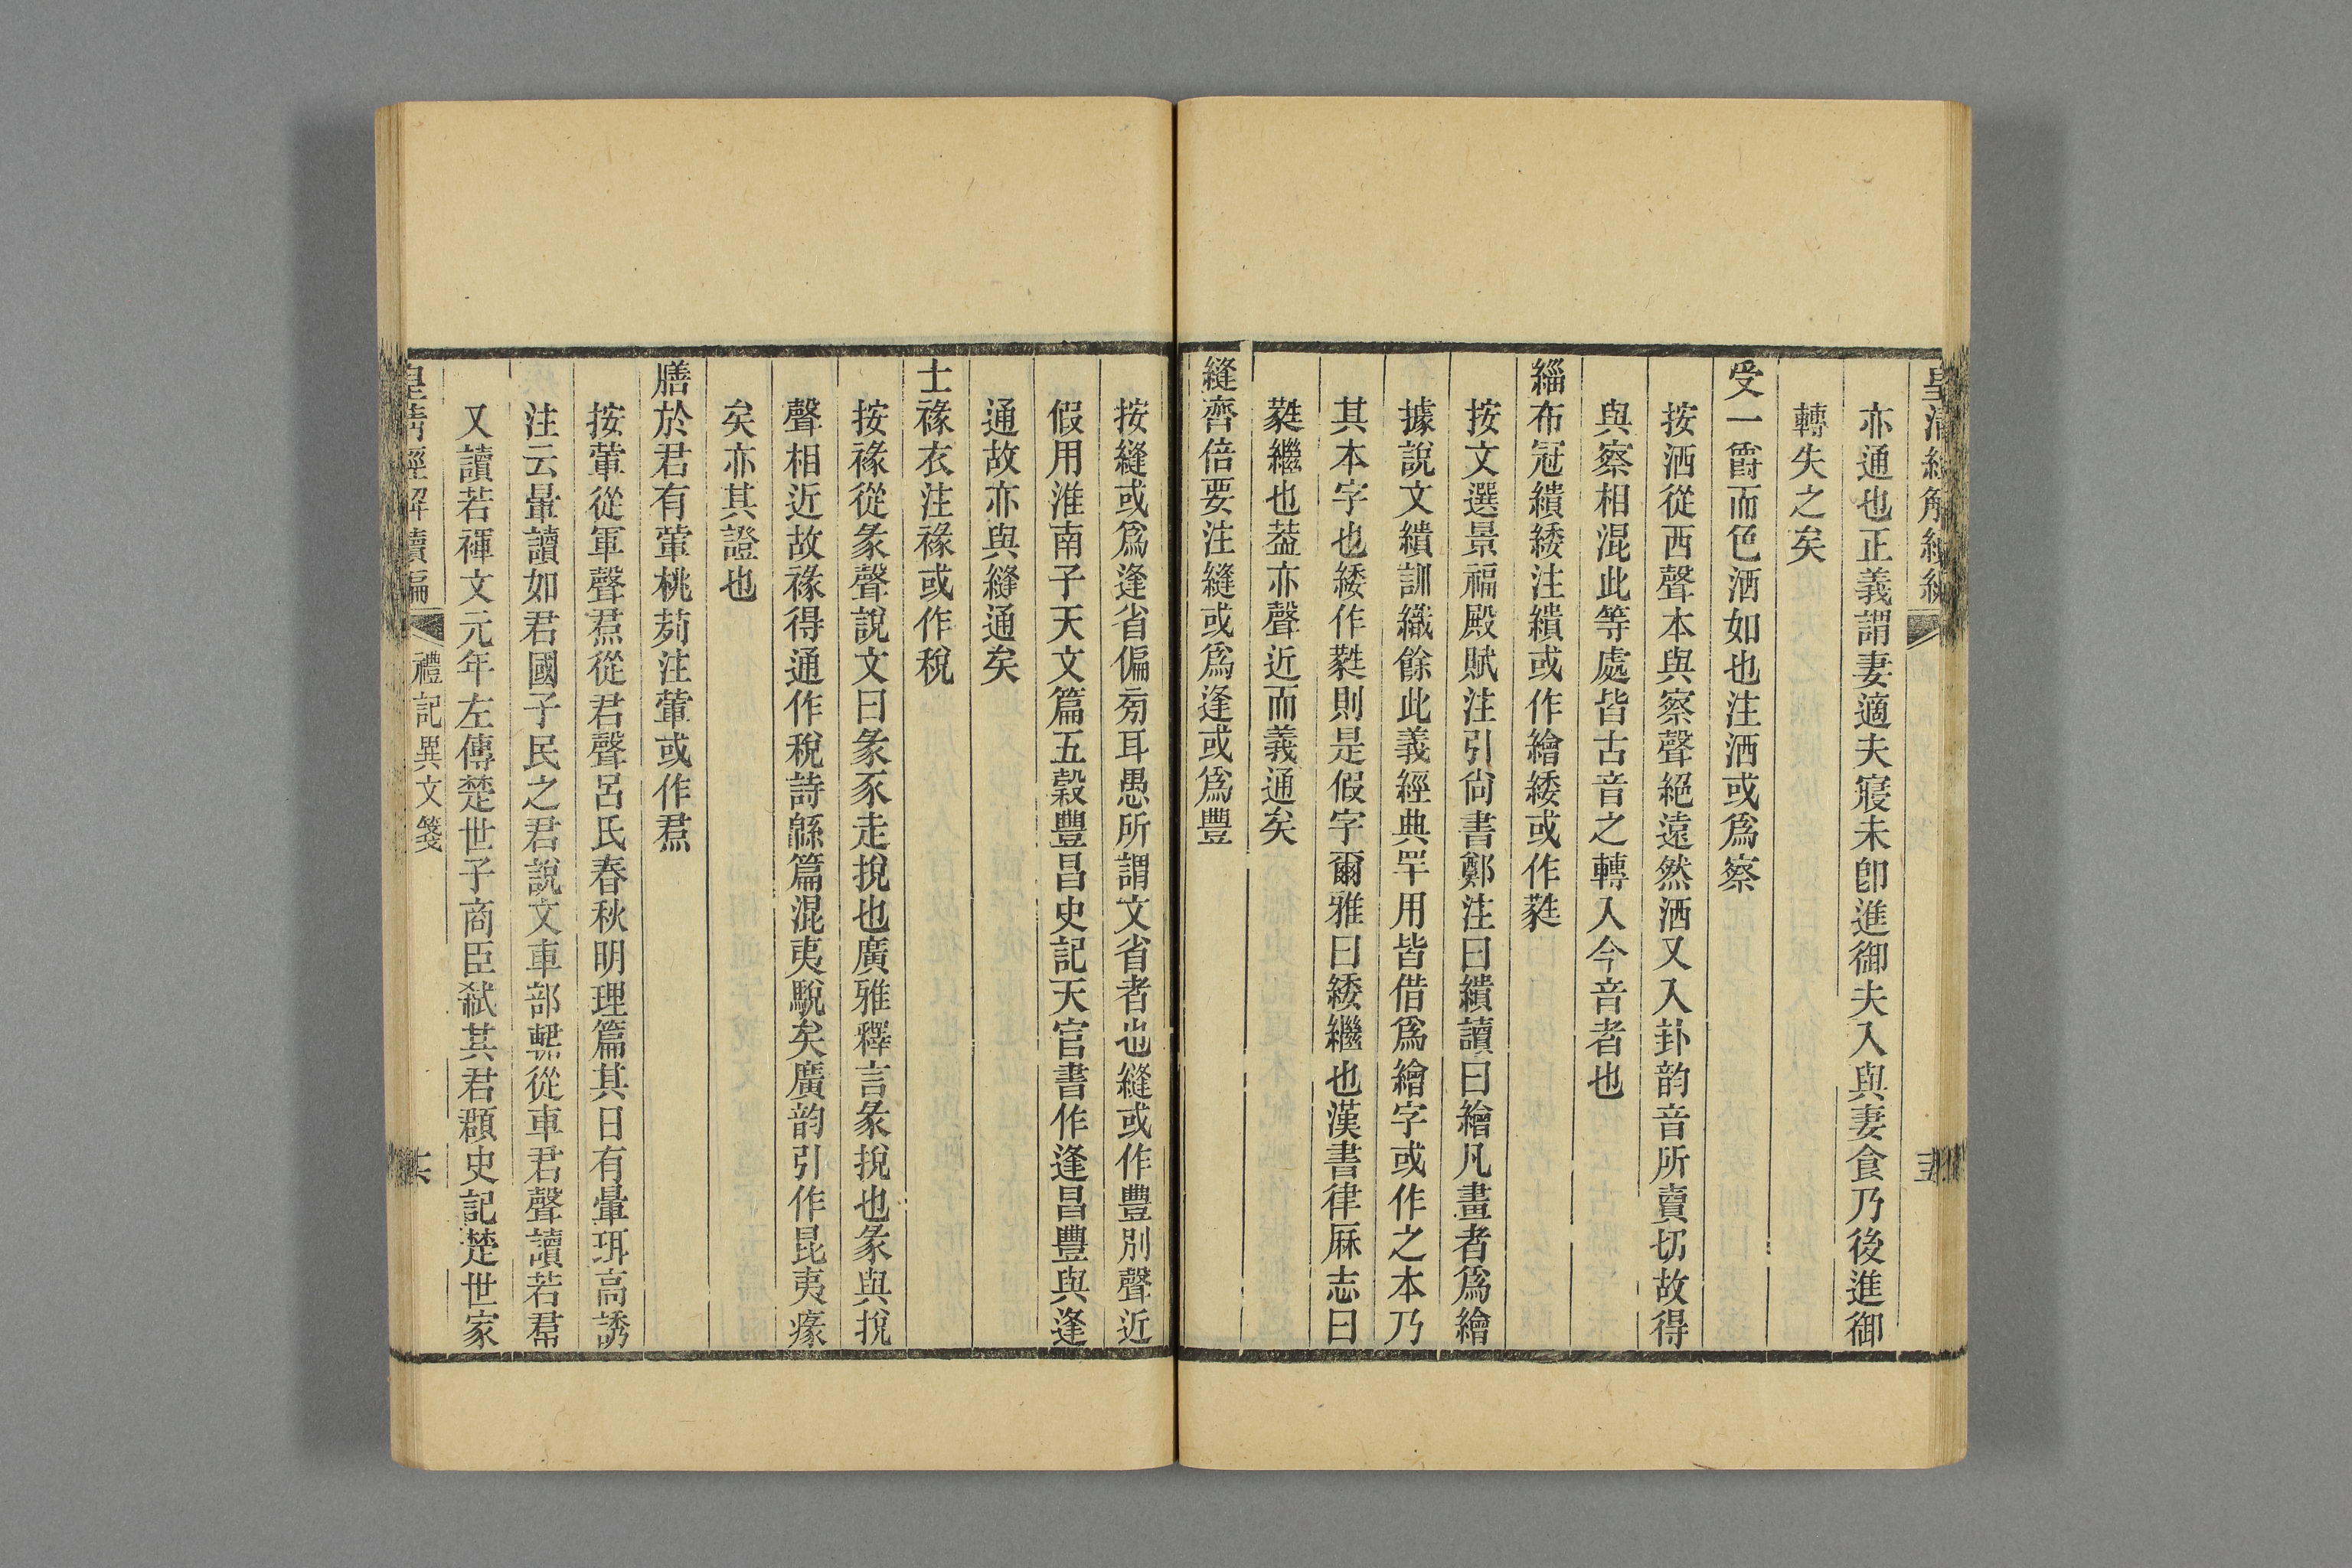 皇清經解續編
亦通也正義謂妻適夫寢未卽進御夫入與妻食乃後進御
轉失之矣
受一爵而色洒如也注洒或爲察
按洒從西聲本與察聲絕遠然洒又入卦韵音所賣切故得
與察相混此等處皆古音之轉入今音者也
緇布冠繢緌注繢或作繪緌或作蕤
按文選景福殿賦注引尙書鄭注曰繢讀曰繪凡畫者爲繪
據說文繢訓織餘此義經典罕用皆借爲繪字或作之本乃
其本字也緌作蕤則是假字爾雅曰緌繼也漢書律厤志曰
蕤繼也葢亦聲近而義通矣
縫齊倍要注縫或爲逢或爲豐
按縫或爲逢省偏旁耳愚所謂文省者也縫或作豐別聲近
假用淮南子天文篇五穀豐昌史記天官書作逢昌豐與逢
通故亦與縫通矣
士褖衣注褖或作稅
按褖從彖聲說文曰彖豕走挩也廣雅釋言彖挩也彖與挩
聲相近故褖得通作稅詩緜篇混夷駾矣廣韵引作昆夷瘃
矣亦其證也
膳於君有葷桃茢注葷或作焄
按葷從軍聲焄從君聲呂氏春秋明理篇其日有暈珥高誘
注云暈讀如君國子民之君說文車部䡣從車君聲讀若羣
又讀若褌文元年左傳楚世子商臣弒其君頵史記楚世家
皇淸經解續編
禮記異文箋